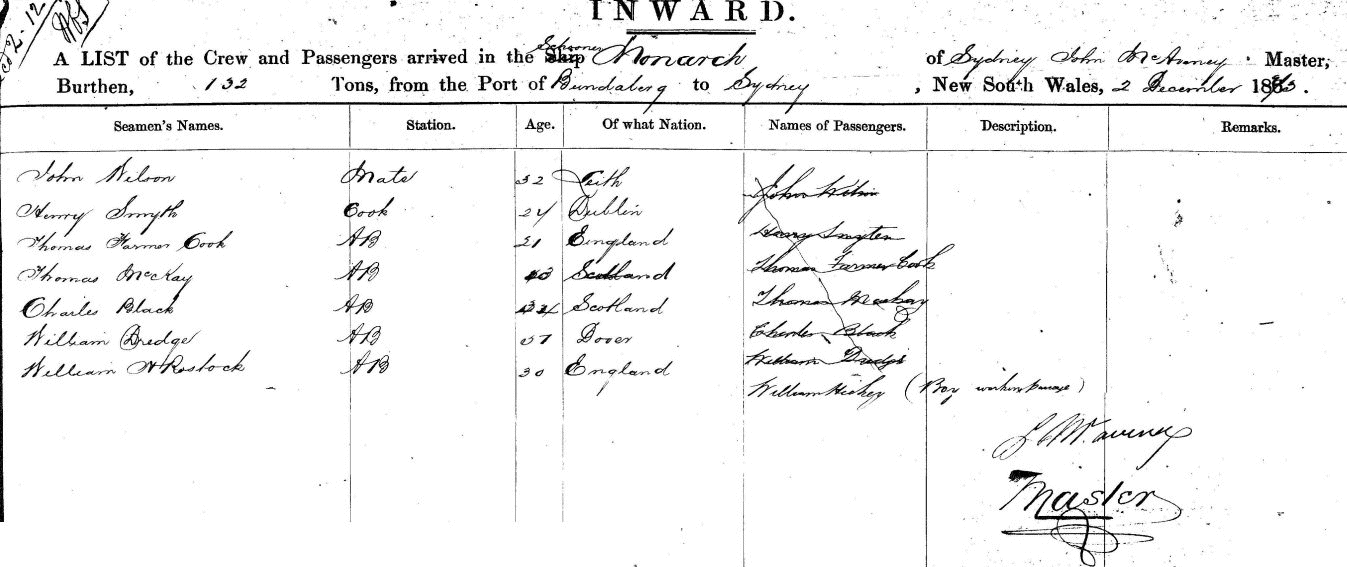 co 2-12
INWARD.
A LIST of the Crew and Passengers arrived in the Ship Schooner Monarch of Sydney John McAnney Master,
Burthen, 132 Tons, from the Port of Bundaberg to Sydney, New South Wales, 2 December 1873.
Seamen's Names. Station. Age. Of what Nation. Names of Passengers. Description. Remarks.
John Wilson Mate 32 Leith John Wilson
Henry Smyth Cook 24 Dublin Henry Smyten
Thomas Farmer Cook AB 21 England Thomas Farmer Cook
Thomas McKay AB 43 Scotland Thomas Mackay
Charles Black AB 34 Scotland Charles Black
William Dredge AB 37 Dover William Dredge
William W Rostock AB 30 England
William Hickey (Boy working passage)
Master